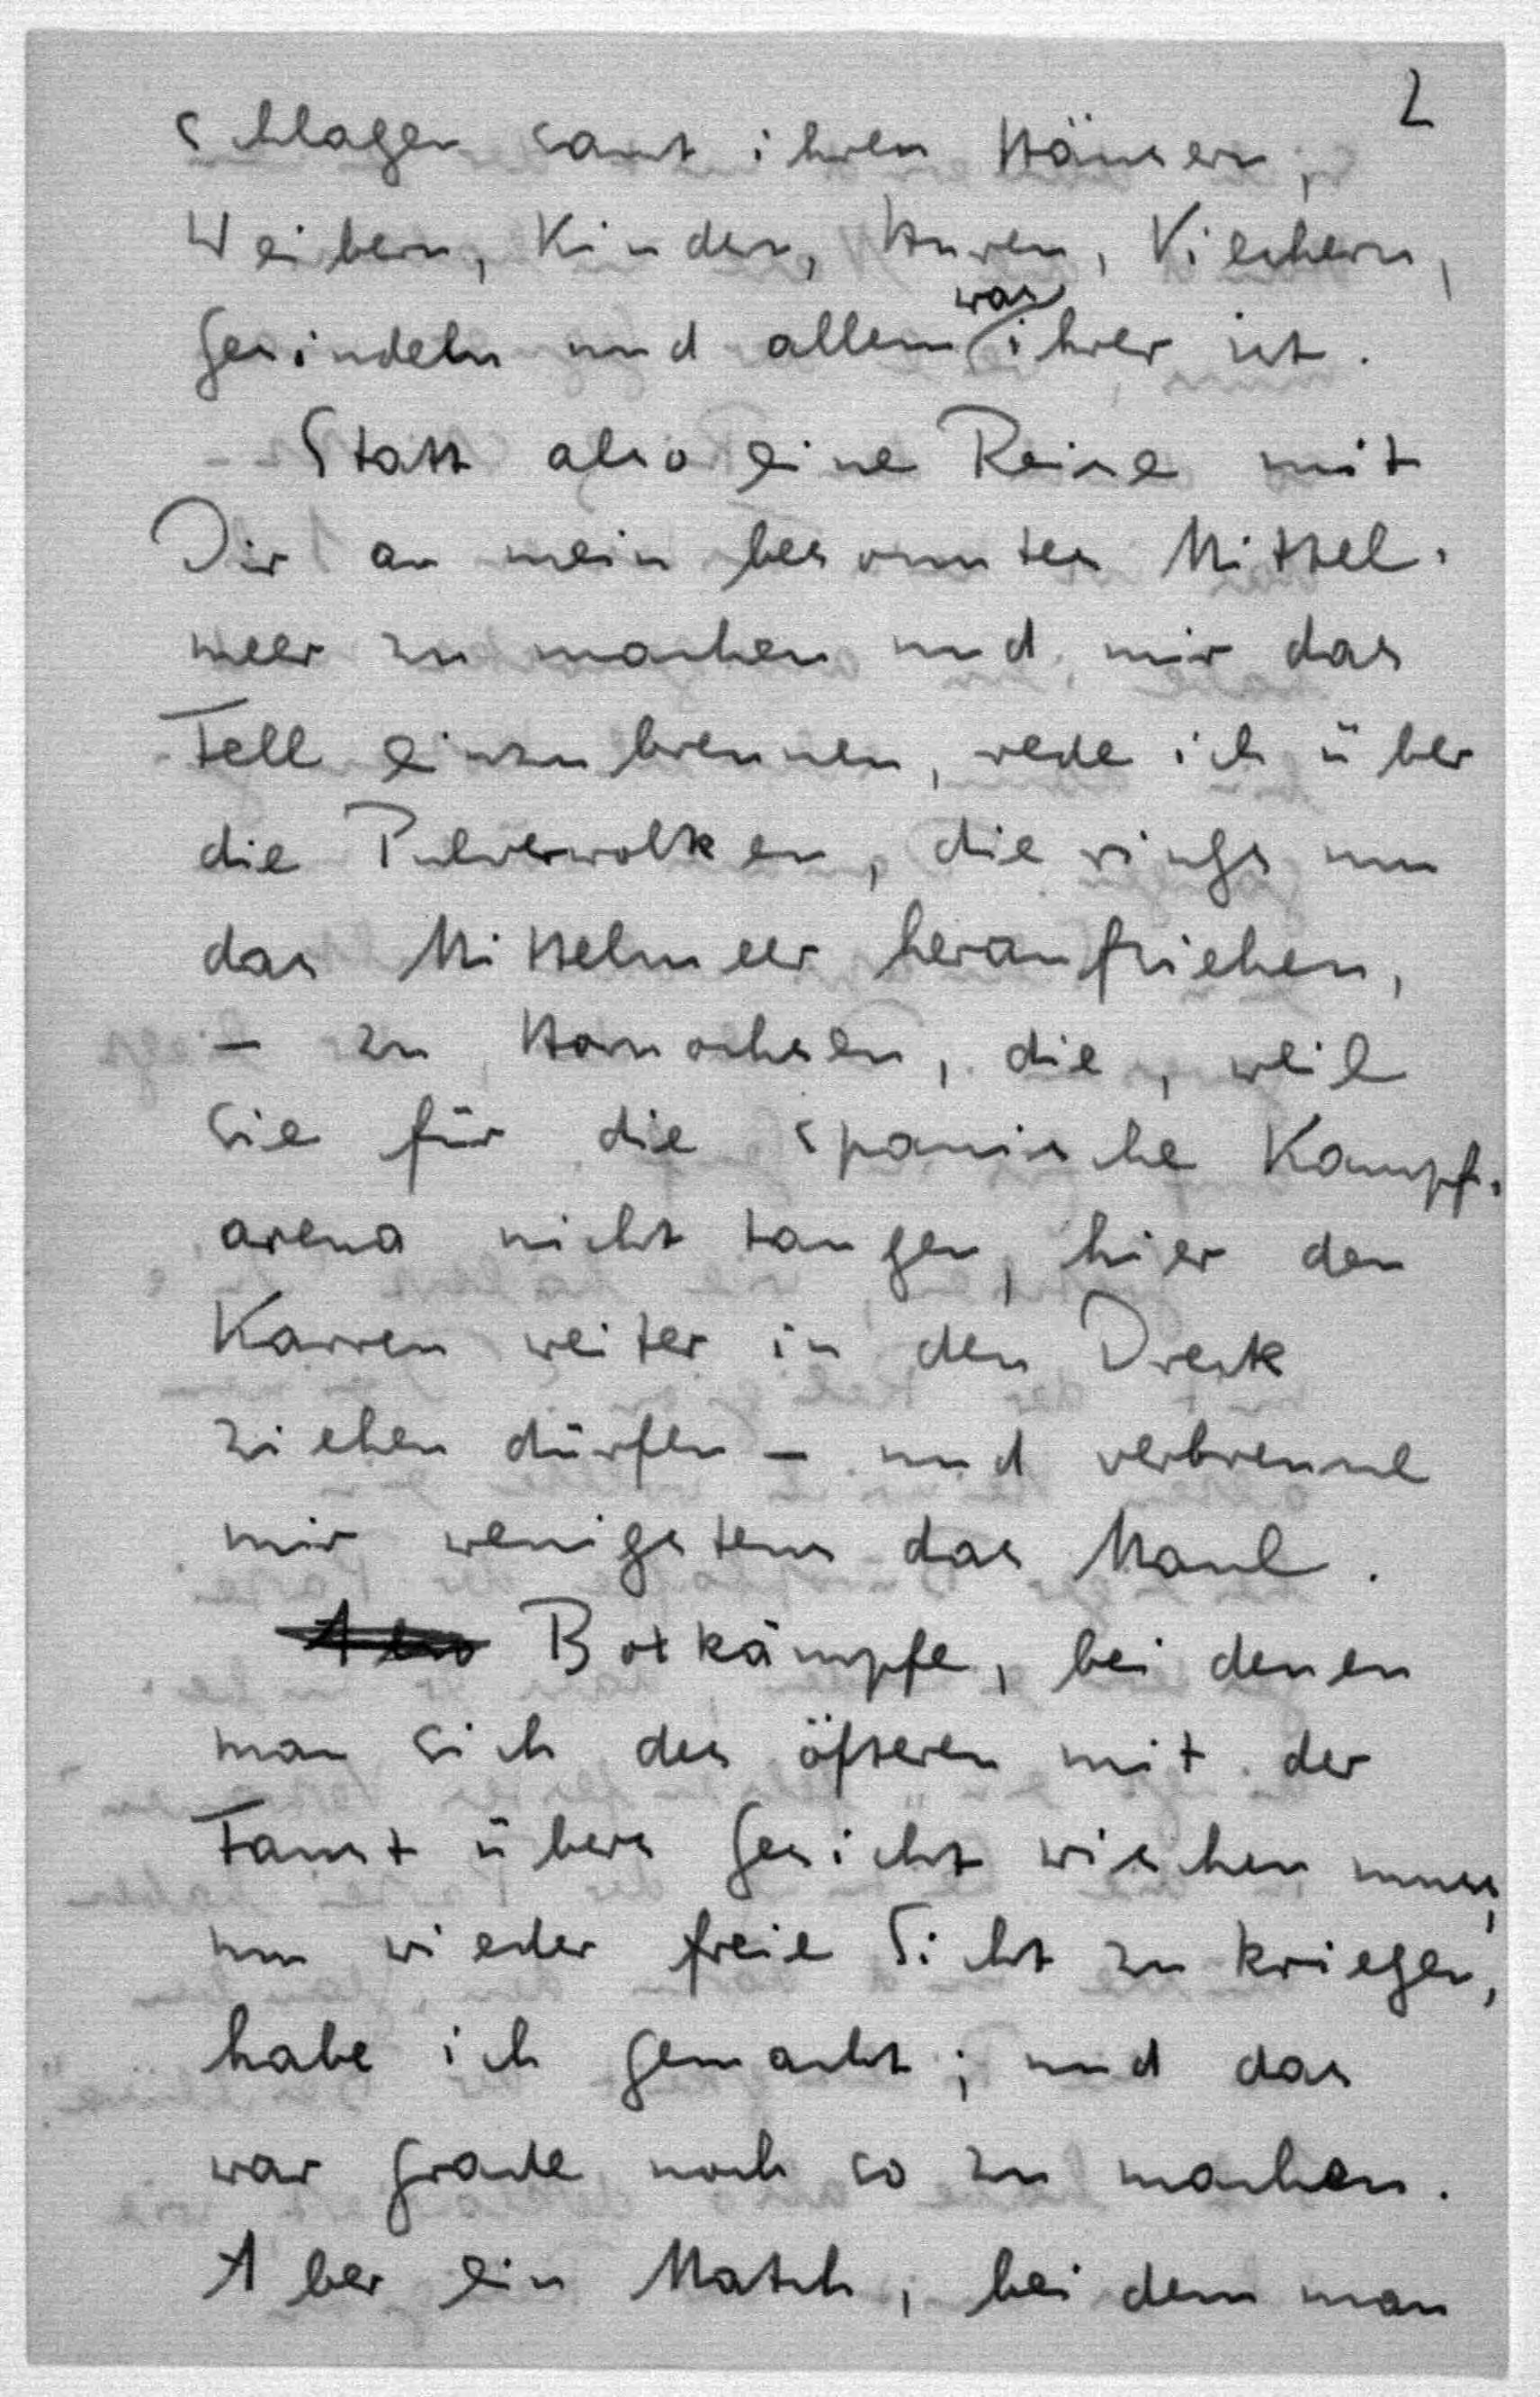 2
schlagen samt ihren Häusern,
Weibern, Kindern, Huren, Viechern,
Gesindeln und allem was ihrer ist.
Statt also eine Reise mit
Dir an mein besonntes Mittel-
meer zu machen und mir das
Fell einzubrennen, rede ich über
die Pulverwolken, die rings um
das Mittelmeer heraufziehen,
– zu Hornochsen, die, weil
sie für die spanische Kampf-
arena nicht taugen, hier den
Karren weiter in den Dreck
ziehen dürfen – und verbrenne
mir wenigstens das Maul.
Also Boxkämpfe, bei denen
man sich des öfteren mit der
Faust übers Gesicht wischen muss,
um wieder freie Sicht zu kriegen,
habe ich gemacht; und das
war grade noch so zu machen.
Aber ein Match, bei dem man